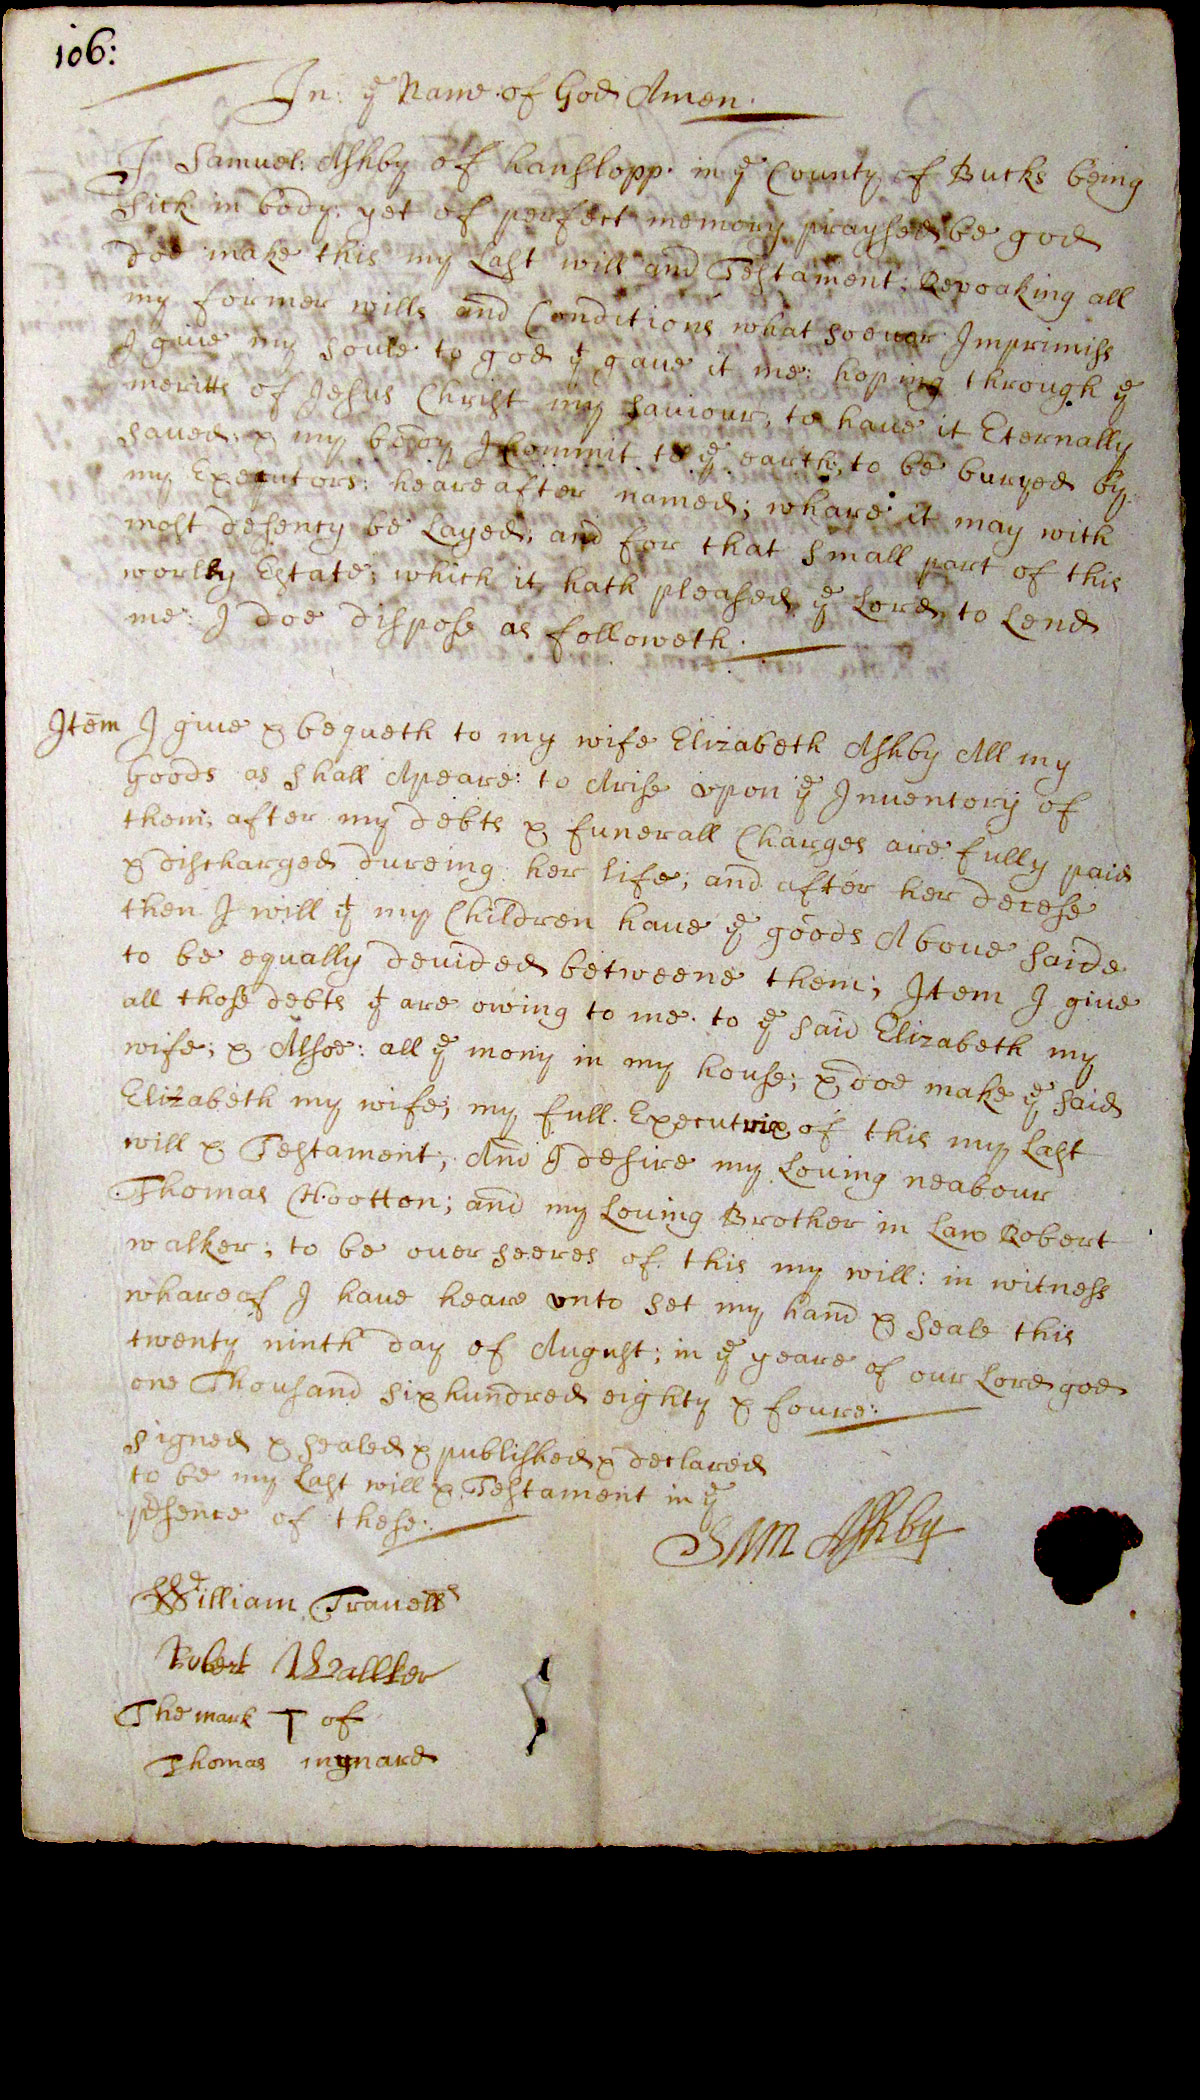 106:
In: ye Name of God Amen.
I Samuel: Ashby of hanslopp. in ye County of Bucks being
Sick in body: yet of perfect memory praysed be god
doe make this my Last will and Testament: Revoaking all
my former wills and Conditions what soeuer Imprimiss
I giue my soule to god yt gaue it me: hoping through ye
meritts of Jesus Christ my saviour, to haue it Eternally
saued; & my body I Commit to ye earth, to be buryed by
my Executors: heareafter named; whare it may with
most desency be Layed, and for that small part of this
worlly Estate; which it hath pleased ye Lord, to Lend
me: I doe dispose as followeth.
Item I giue & bequeth to my wife Elizabeth Ashby All my
Goods as shall Apeare: to Arise vpon ye Inuentory of
them; after my debts & funerall Charges are fully paid
& discharged dureing her life; and after her decese
then I will yt my Children haue ye goods Aboue saide
to be equally deuided betweene them; Item I giue
all those debts yt are owing to me. to ye said Elizabeth my
wife; & Allsoe: all ye mony in my house; & doe make ye said
Elizabeth my wife; my full Executrix of this my Last
will & Testament; And I desire my Loving neabour
Thomas Hootton; and my Louing Brother in Law Robert
walker; to be ouerseeres of this my will: in witness
whareof I haue heare vnto set my hand & seale this
twenty ninth day of August; in ye yeare of our Lord god
one Thousand six hundred eighty & foure:
signed & sealed & published & declared
to be my Last will & Testament in ye
psence of these:
Sam Ashby
William Travell
Robert Wallker
The mark T of
Thomas mynard